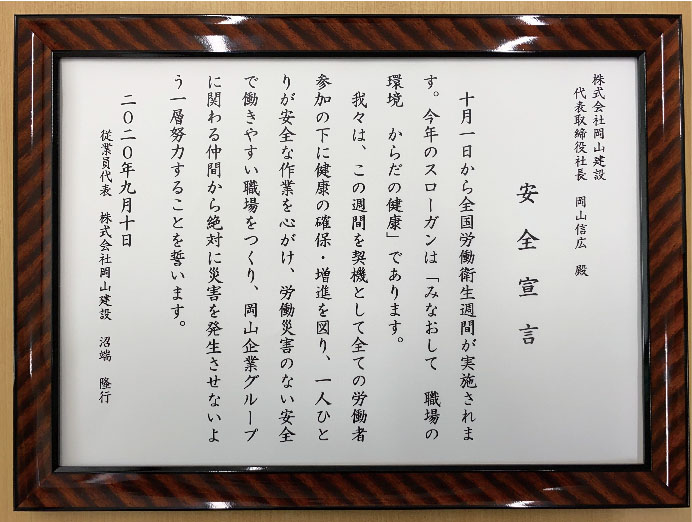 株式会社岡山建設
代表取締役社長　岡山信広　殿
安全宣言
十月一日から全国労働衛生週間が実施されま
す。今年のスローガンは「みなおして　職場の
環境　からだの健康」であります。
我々は、この週間を契機として全ての労働者
参加の下に健康の確保・増進を図り、一人ひと
りが安全な作業を心がけ、労働災害のない安全
で働きやすい職場をつくり、岡山企業グループ
に関わる仲間から絶対に災害を発生させないよ
う一層努力することを誓います。
二〇二〇年九月十日
従業員代表　株式会社岡山建設　沼端　隆行